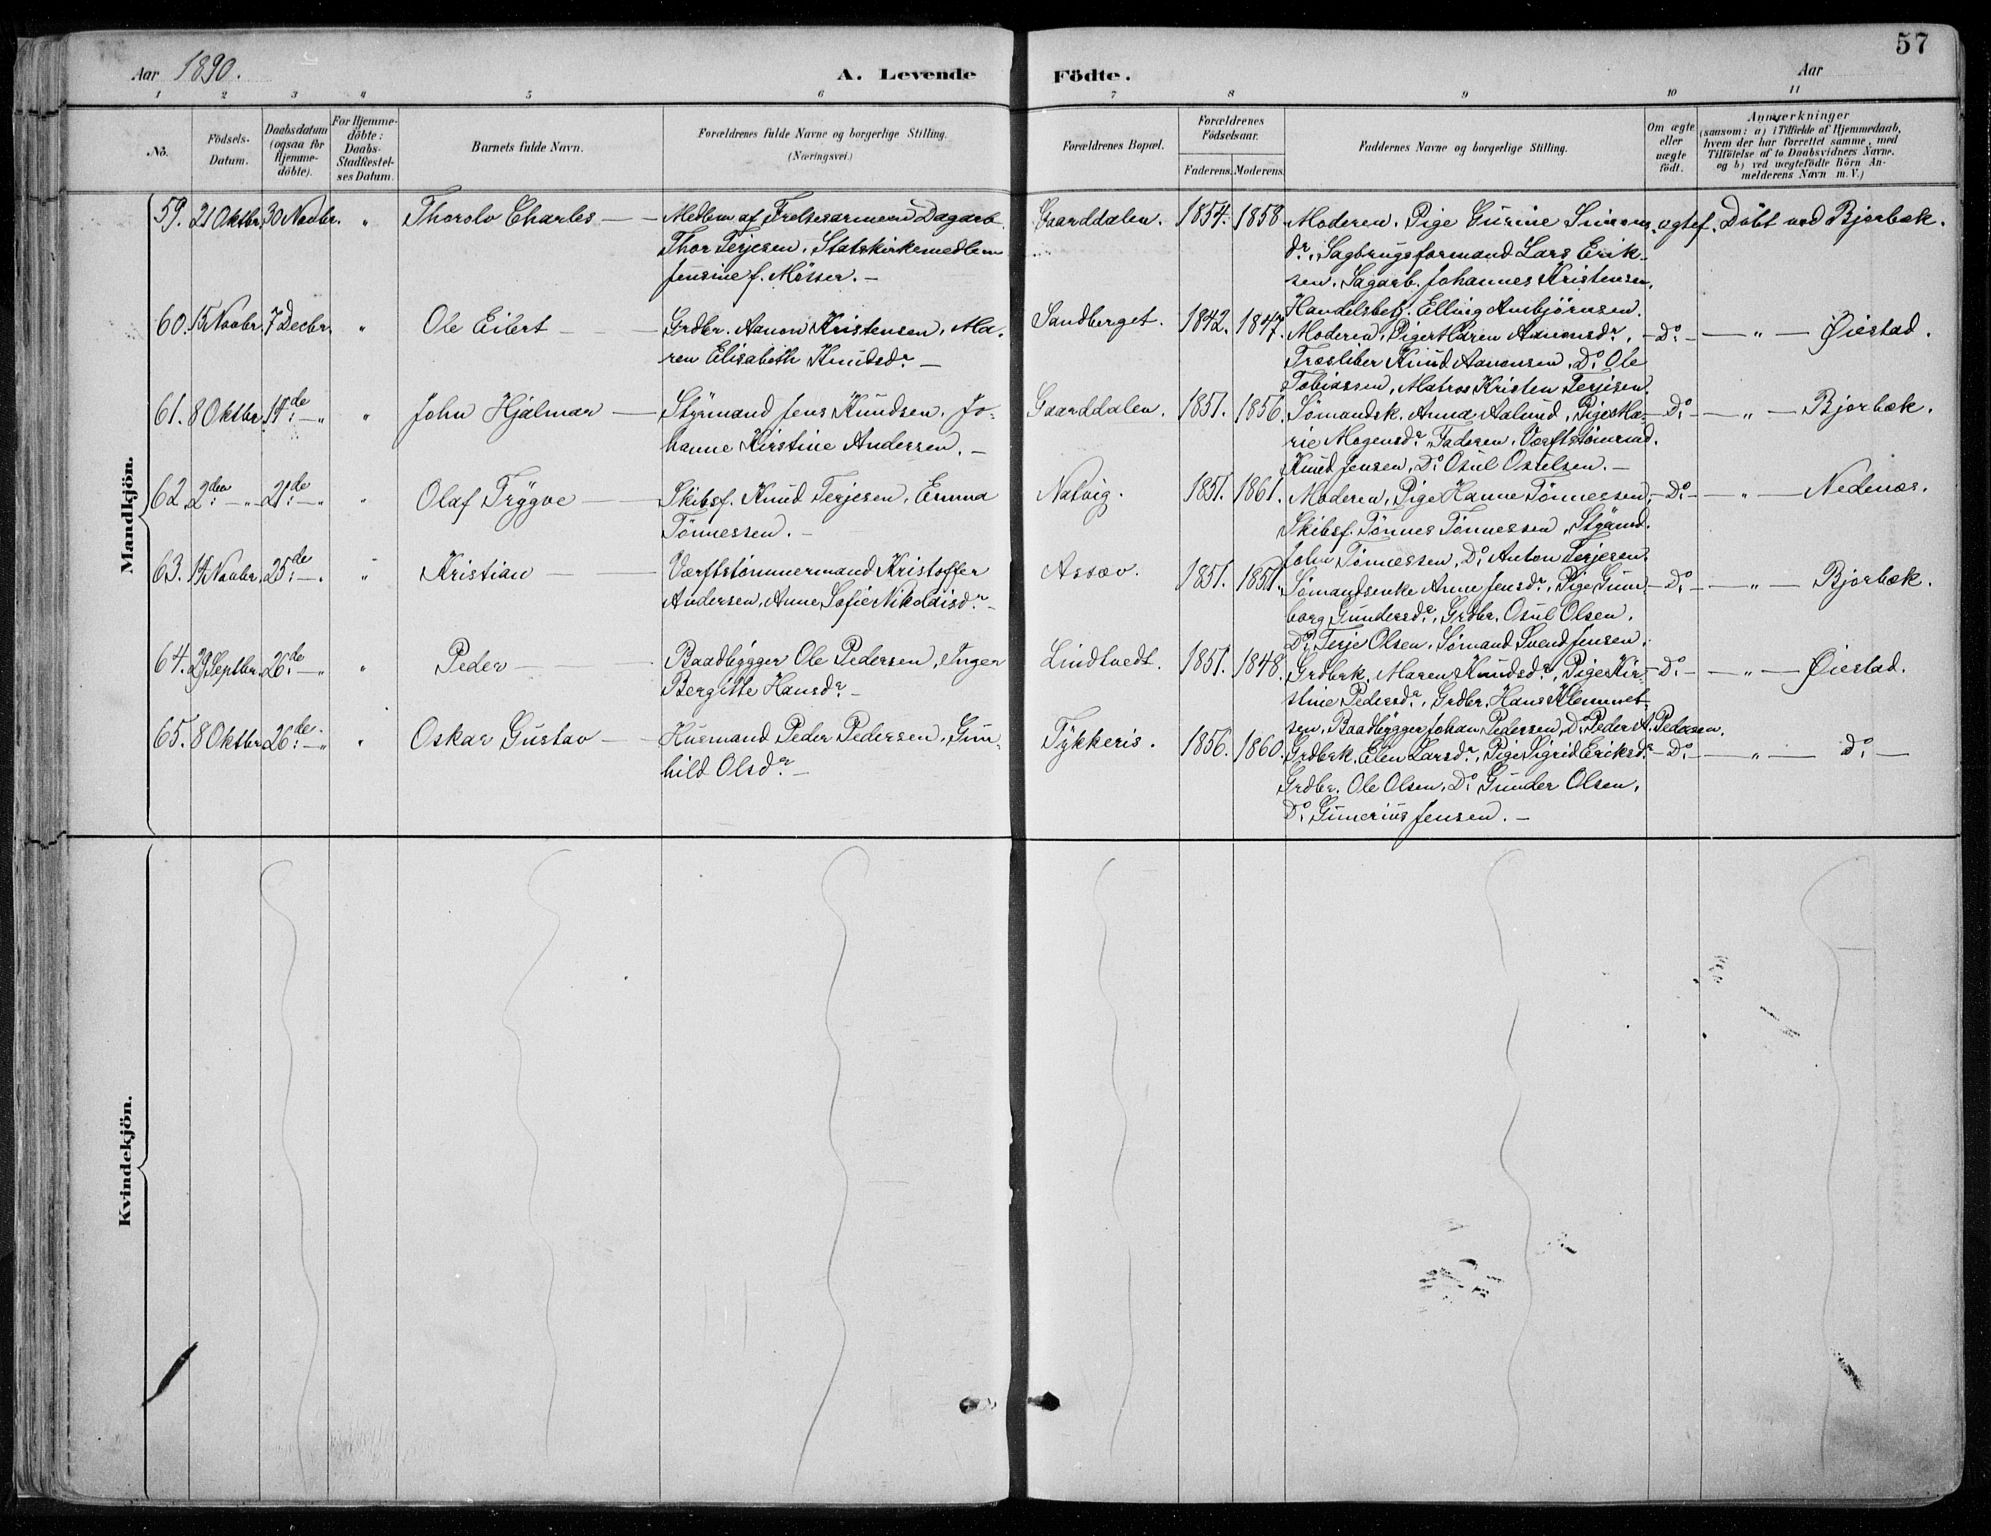 57
Aar 1890.
A. Levende Födte.
Aar
1 2 3 4 5 6 7 8 9 10 11
No.
Födsels-Datum.
Daabsdatum (ogsaa for Hjemme-döbte).
For Hjemme-döbte: Daabs-Stadfæstel-ses Datum.
Barnets fulde Navn.
Forældrenes fulde Navne og borgerlige Stilling.
(Næringsvei.)
Forældrenes Bopæl.
Forældrenes Födselsaar.
Faderens. Moderens.
Faddernes Navne og borgerlige Stilling.
Om ægte eller uægte födt.
Anmærkninger
(saasom: a) i Tilfælde af Hjemmedaab,
hvem der har forrettet samme, med
Tilföielse af to Daabsvidners Navne,
og b) ved uægtefödte Börn An-
melderens Navn m. V.)
Mandkjön.
59. 21 Oktbr. 30 Novbr. " Thorolv Charles — — Medlem af Frelsesarmeen Dagarb.
Thor Terjesen, Statskirkemedlem
Jensine f. Møsser. —
Gaarddalen. 1854. 1858. Moderen, Pige Gurine Simons
dr., Sagbrugsformand Lars Erik-
sen, Sagarb. Johannes Kristensen,
Handelsbetj. Elling Ambjørnsen.
ægtef. Døbt ved Bjorbæk.
60. 15 Novbr. 7 Decbr. " Ole Eilert — — Grdbr. Aanon Kristensen, Ma-
ren Elisabeth Knudsdr. —
Sandberget. 1842. 1847. Moderen, Pige Maren Aanonsdr.,
Træsliber Knud Aanonsen, Do. Ole
Tobiassen, Matros Kristen Terjesen.
— Do. — — " — Øiestad.
61. 8 Oktbr. 14de — " " John Hjalmar — Styrmand Jens Knudsen, Jo-
hanne Kirstine Andersen. —
Gaarddalen. 1851. 1856. Sømandsk. Anna Aalund, Pige Ma-
rie Mogensdr., Faderen, Værftstømmd.
Knud Jensen, Do. Osul Osulsen. —
— Do. — — " — Bjorbæk.
62. 2den — " — 21de — " " Olaf Trygve — Skibsf. Knud Terjesen, Emma
Tønnessen. —
Natvig. 1851. 1861. Moderen, Pige Hanne Tønnessen,
Skibsf. Tønnes Tønnessen, Styrmd.
John Tønnessen, Do. Anton Terjesen.
— Do. — — " — Nedenæs.
63. 14 Novbr. 25de — " " Kristian — — Værftstømmermand Kristoffer
Andersen, Anne Sofie Nikolaisdr. —
Assæv. 1851. 1851. Sømandsenke Anne Jensdr., Pige Gun-
borg Gundersdr., Grdbr. Osul Olsen,
Do. Terje Olsen, Sømand Svend Jensen.
— Do. — — " — Bjorbæk.
64. 29 Septbr. 26de — " " Peder — — Baadbygger Ole Pedersen, Inger
Bergitte Hansdr. —
Lindtvedt. 1851. 1848. Grdbrk. Maren Knudsdr., Pige Kir-
stine Pedersdr., Grdbr. Hans Klemmet-
sen, Baadbygger Johan Pedersen, Do. Peder A. Pedersen.
— Do. — — " — Øiestad.
65. 8 Oktbr. 26de — " " Oskar Gustav — Husmand Peder Pedersen, Gun-
hild Olsdr. —
Tykkeris. 1856. 1860. Grdbrk. Elen Larsdr., Pige Sigrid Eriksdr.
Grdbr. Ole Olsen, Do. Gunder Olsen,
Do. Gunerius Jensen. —
— Do. — — " — Do. —
Kvindekjön.